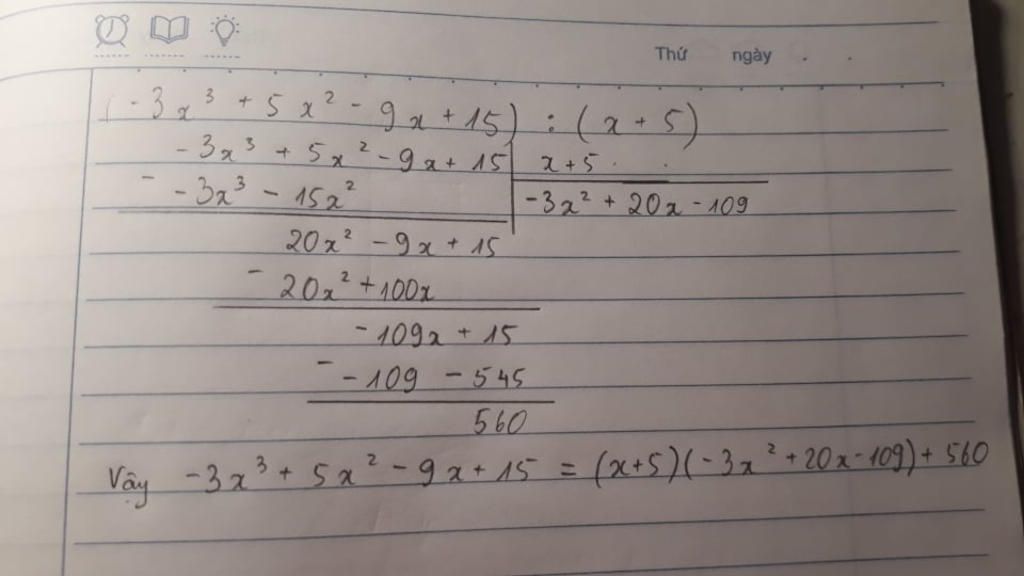 Thứ ngày
(-3x³ + 5x² - 9x + 15) : (x + 5)
-3x³ + 5x² - 9x + 15 x+5
- -3x³ - 15x² -3x² + 20x - 109
20x² - 9x + 15
- 20x² + 100x
-109x + 15
- -109 - 545
560
Vậy -3x³ + 5x² - 9x + 15 = (x+5)(-3x² + 20x - 109) + 560